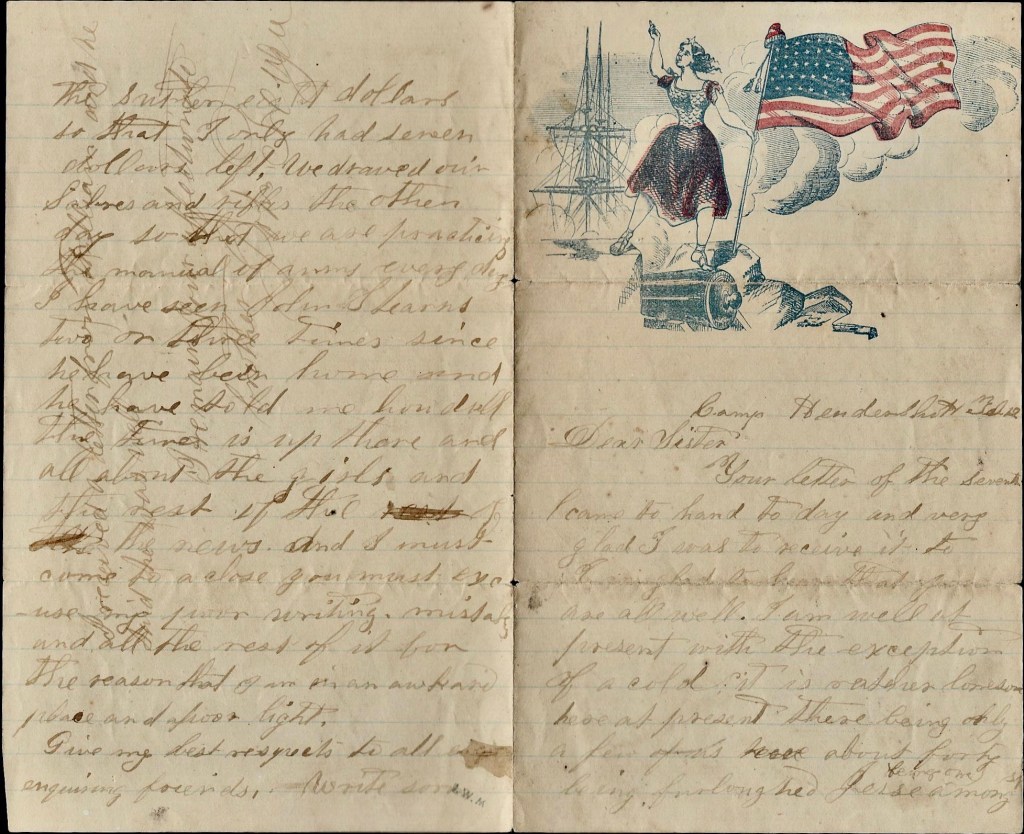 Camp Hendershott
Dear Sister
Your letter of the seventh
came to hand to day and very
glad I was to receive it to
hear that you
are all well. I am well at
present with the exception
of a cold it is rather lonesom
here at present there being only
a few of us about forty
being one
being furloughed Jesse among
the sutler eight dollars
so that I only had seven
dollars left. We drawed our
Sabres and rifles the other
day so that we are practicing
the manual of arms every day
I have seen John Stearns
two or three Times since
he have been home and
he have told me how dull
the Times is up there and
all about the girls and
the rest of the rest of
the news. and I must
come to a close you must exc
-use my poor writing. mistakes
and all the rest of it for
the reason that I am in an awkward
place and a poor light.
Give my best respects to all
enquiring friends. Write soon
A.W.M.